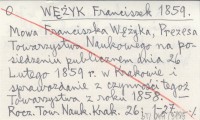 WĘŻYK Franciszek 1859.
Mowa Franciszka Wężyka, Prezesa
Towarzystwa Naukowego na po-
siedzeniu publicznem dnia 26
Lutego 1859 r. w Krakowie i
sprawozdanie z czynności tegoż
Towarzystwa z roku 1858.
Rocz. Tow. Nauk. Krak. 26: 1-27.